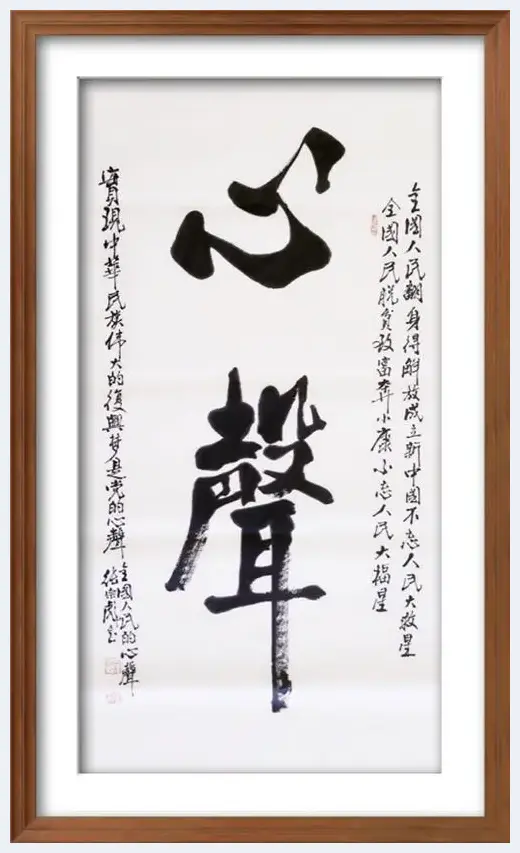 全國人民翻身得解放成立新中國不忘人民大救星
全國人民脫貧致富奔小康不忘人民大福星
心聲
實現中華民族伟大的復興梦是党的心聲
全國人民的心聲